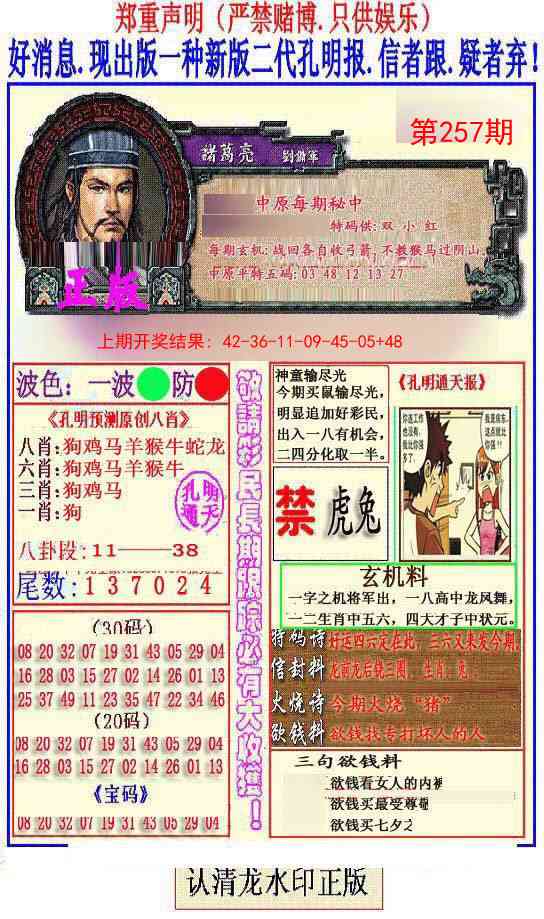 郑重声明（严禁赌博.只供娱乐）
好消息.现出版一种新版二代孔明报.信者跟.疑者弃!
第257期
諸葛亮
劉備軍
中原每期秘中
特码供: 双 小 红
每期玄机: 战回各自收弓箭, 不教猴马过阴山.
中原平特五码: 03 48 12 13 27
正版
上期开奖结果: 42-36-11-09-45-05+48
波色: 一波 防
《孔明预测原创八肖》
八肖: 狗鸡马羊猴牛蛇龙
六肖: 狗鸡马羊猴牛
三肖: 狗鸡马
一肖: 狗
孔明
通天
八卦段: 11——38
尾数: 1 3 7 0 2 4
(30码)
08 20 32 07 19 31 43 05 29 04
16 28 03 15 27 02 14 26 01 13
25 37 49 11 23 35 47 22 34 46
(20码)
08 20 32 07 19 31 43 05 29 04
16 28 03 15 27 02 14 26 01 13
《宝码》
08 20 32 07 19 31 43 05 29 04
敬請彩民長期跟踪必有大收獲!
神童输尽光
今期买鼠输尽光,
明显追加好彩民,
出入一八有机会,
二四分化取一半。
禁 虎兔
《孔明通天报》
你连工作
也没有,
我比你强
多了,
我是房东,
这点就比
你强!!
玄机料
一字之机将军出, 一八高中龙凤舞,
一二生肖中五六, 四大才子中状元。
特码诗 好运四六定在此, 三六又来发今期.
信封料 龙前龙后饶三圈, 生肖: 兔.
火烧诗 今期火烧“猪”
欲钱料 欲钱找专打坏人的人
三句欲钱料
欲钱看女人的内裤
欲钱买最受尊敬
欲钱买七夕之
认清龙水印正版